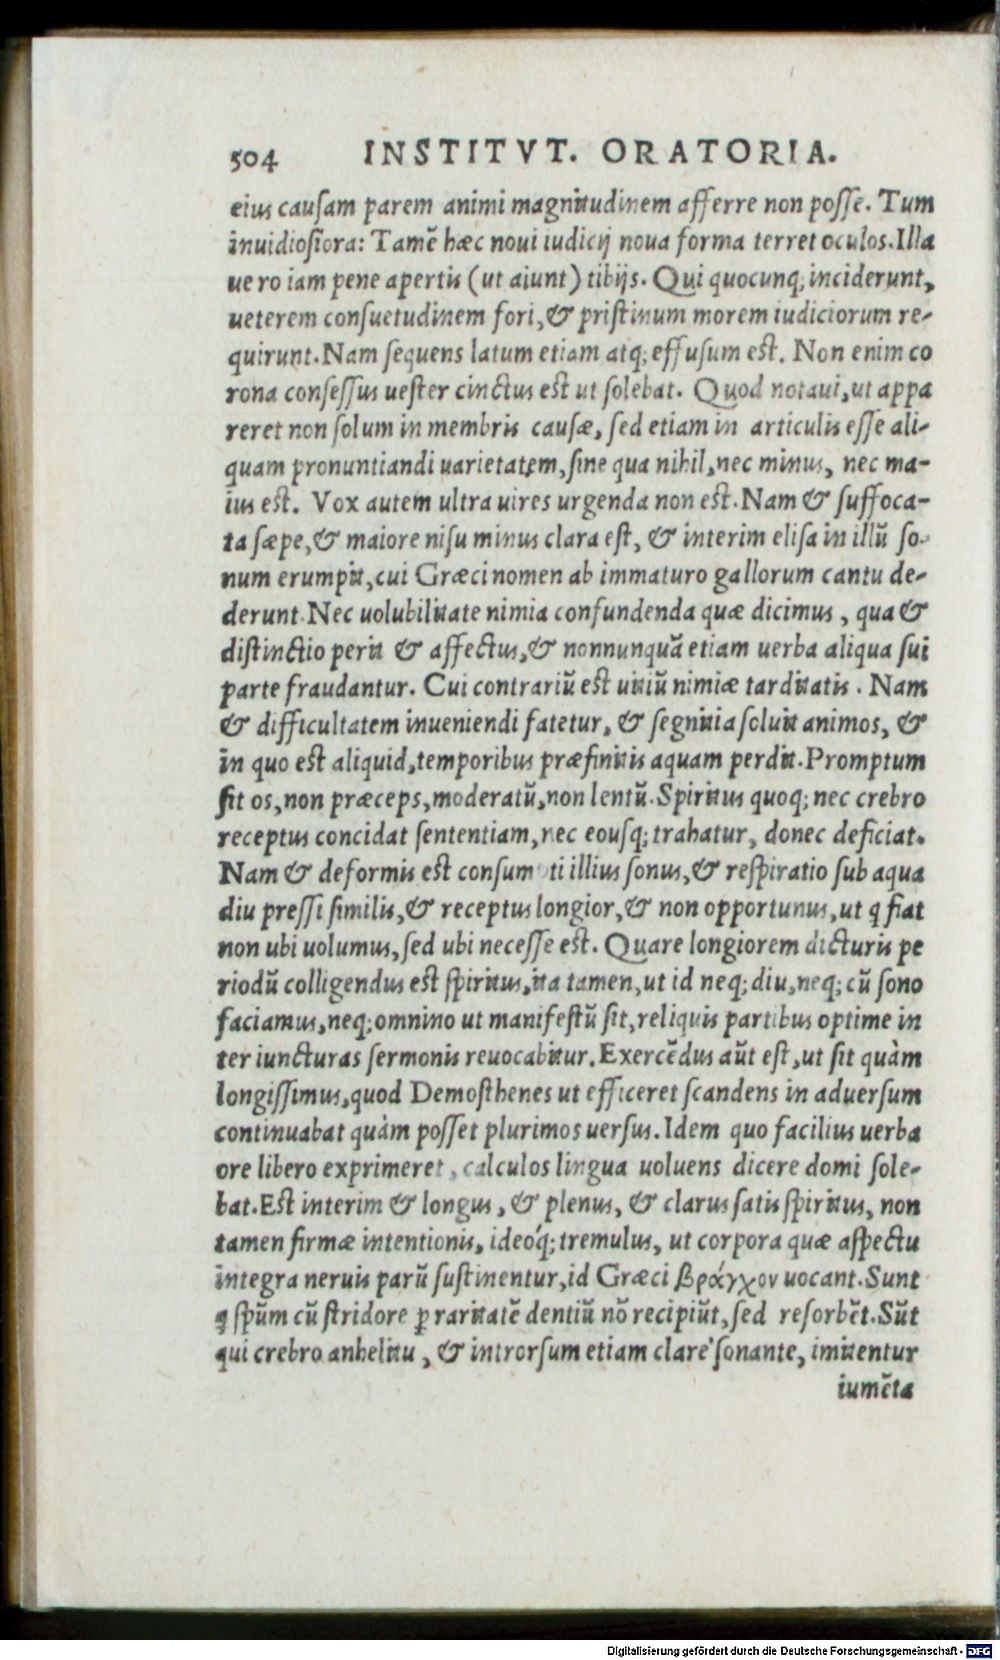 504 INSTITVT. ORATORIA.
eius causam parem animi magnitudinem afferre non posse. Tum
inuidiosiora: Tamē hæc noui iudicij noua forma terret oculos. Illa
uero iam pene apertis (ut aiunt) tibijs. Qui quocunq; inciderunt,
ueterem consuetudinem fori, & pristinum morem iudiciorum re-
quirunt. Nam sequens latum etiam atq; effusum est. Non enim co
rona consessus uester cinctus est ut solebat. Quod notaui, ut appa
reret non solum in membris causæ, sed etiam in articulis esse ali-
quam pronuntiandi uarietatem, sine qua nihil, nec minus, nec ma-
ius est. Vox autem ultra uires urgenda non est. Nam & suffoca-
ta sæpe, & maiore nisu minus clara est, & interim elisa in illū so-
num erumpit, cui Græci nomen ab immaturo gallorum cantu de-
derunt. Nec uolubilitate nimia confundenda quæ dicimus, qua &
distinctio perit & affectus, & nonnunquā etiam uerba aliqua sui
parte fraudantur. Cui contrariū est uitiū nimiæ tarditatis. Nam
& difficultatem inueniendi fatetur, & segnitia soluit animos, &
in quo est aliquid, temporibus præfinitis aquam perdit. Promptum
sit os, non præceps, moderatū, non lentū. Spiritus quoq; nec crebro
receptus concidat sententiam, nec eousq; trahatur, donec deficiat.
Nam & deformis est consum ti illius sonus, & respiratio sub aqua
diu pressi similis, & receptus longior, & non opportunus, ut q fiat
non ubi uolumus, sed ubi necesse est. Quare longiorem dicturis pe
riodū colligendus est spiritus, ita tamen, ut id neq; diu, neq; cū sono
faciamus, neq; omnino ut manifestū sit, reliquis partibus optime in
ter iuncturas sermonis reuocabitur. Exercēdus aūt est, ut sit quàm
longissimus, quod Demosthenes ut efficeret scandens in aduersum
continuabat quàm posset plurimos uersus. Idem quo facilius uerba
ore libero exprimeret, calculos lingua uoluens dicere domi sole-
bat. Est interim & longus, & plenus, & clarus satis spiritus, non
tamen firmæ intentionis, ideóq; tremulus, ut corpora quæ aspectu
integra neruis parū sustinentur, id Græci βράγχον uocant. Sunt
q spūm cū stridore ꝑ raritatē dentiū nō recipiūt, sed resorbēt. Sūt
qui crebro anhelitu, & introrsum etiam clarè sonante, imitentur
iumēta
Digitalisierung gefördert durch die Deutsche Forschungsgemeinschaft - DFG